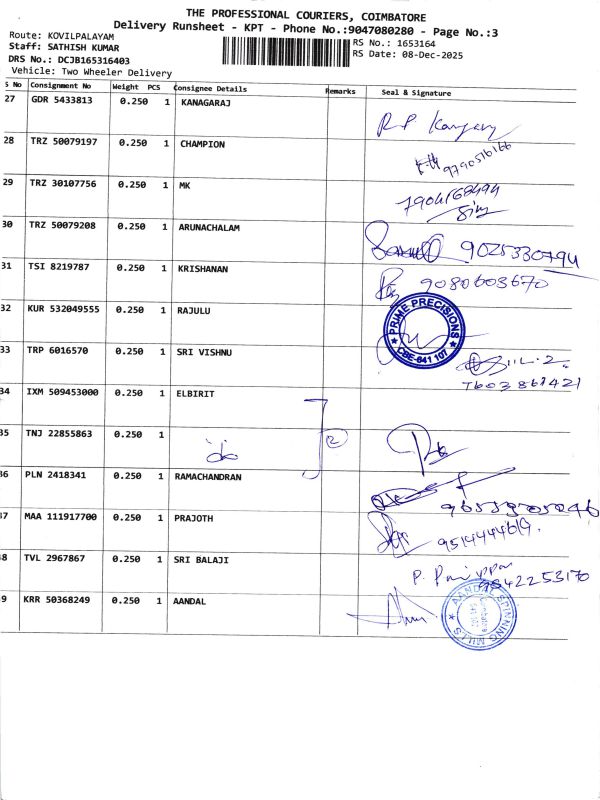 THE PROFESSIONAL COURIERS, COIMBATORE
Delivery Runsheet - KPT - Phone No.:9047080280 - Page No.:3
Route: KOVILPALAYAM
RS No.: 1653164
Staff: SATHISH KUMAR
RS Date: 08-Dec-2025
DRS No.: DCJB165316403
Vehicle: Two Wheeler Delivery
S No Consignment No Weight PCS Consignee Details Remarks Seal & Signature
27 GDR 5433813 0.250 1 KANAGARAJ
28 TRZ 50079197 0.250 1 CHAMPION
9790516166
29 TRZ 30107756 0.250 1 MK
30 TRZ 50079208 0.250 1 ARUNACHALAM
9025330794
31 TSI 8219787 0.250 1 KRISHANAN
9080603670
32 KUR 532049555 0.250 1 RAJULU
PRIME PRECISIONS
CBE-641 107
33 TRP 6016570 0.250 1 SRI VISHNU
34 IXM 509453000 0.250 1 ELBIRIT
35 TNJ 22855863 0.250 1
36 PLN 2418341 0.250 1 RAMACHANDRAN
37 MAA 111917700 0.250 1 PRAJOTH
38 TVL 2967867 0.250 1 SRI BALAJI
39 KRR 50368249 0.250 1 AANDAL
AANDAL SPINNING MILLS